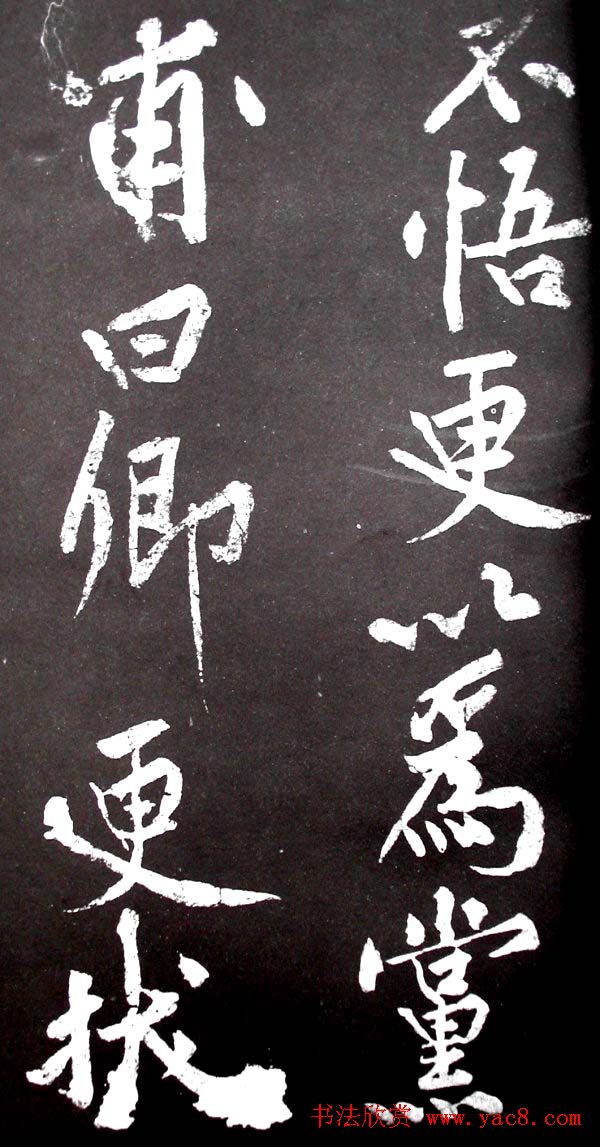 不悟更以為黨
甫曰卿更状
书法欣赏 www.yac8.com